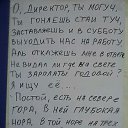 О, Директор, ты могуч,
Ты гоняешь стаи туч,
Заставляешь и в субботу
Выходить нас на работу
Аль откажешь мне в ответе
Не видал ли где на свете
Ты зарплаты годовой?
Я ищу её...
— Постой, есть на севере
Гора, в ней глубокая
Нора, в той норе на трех